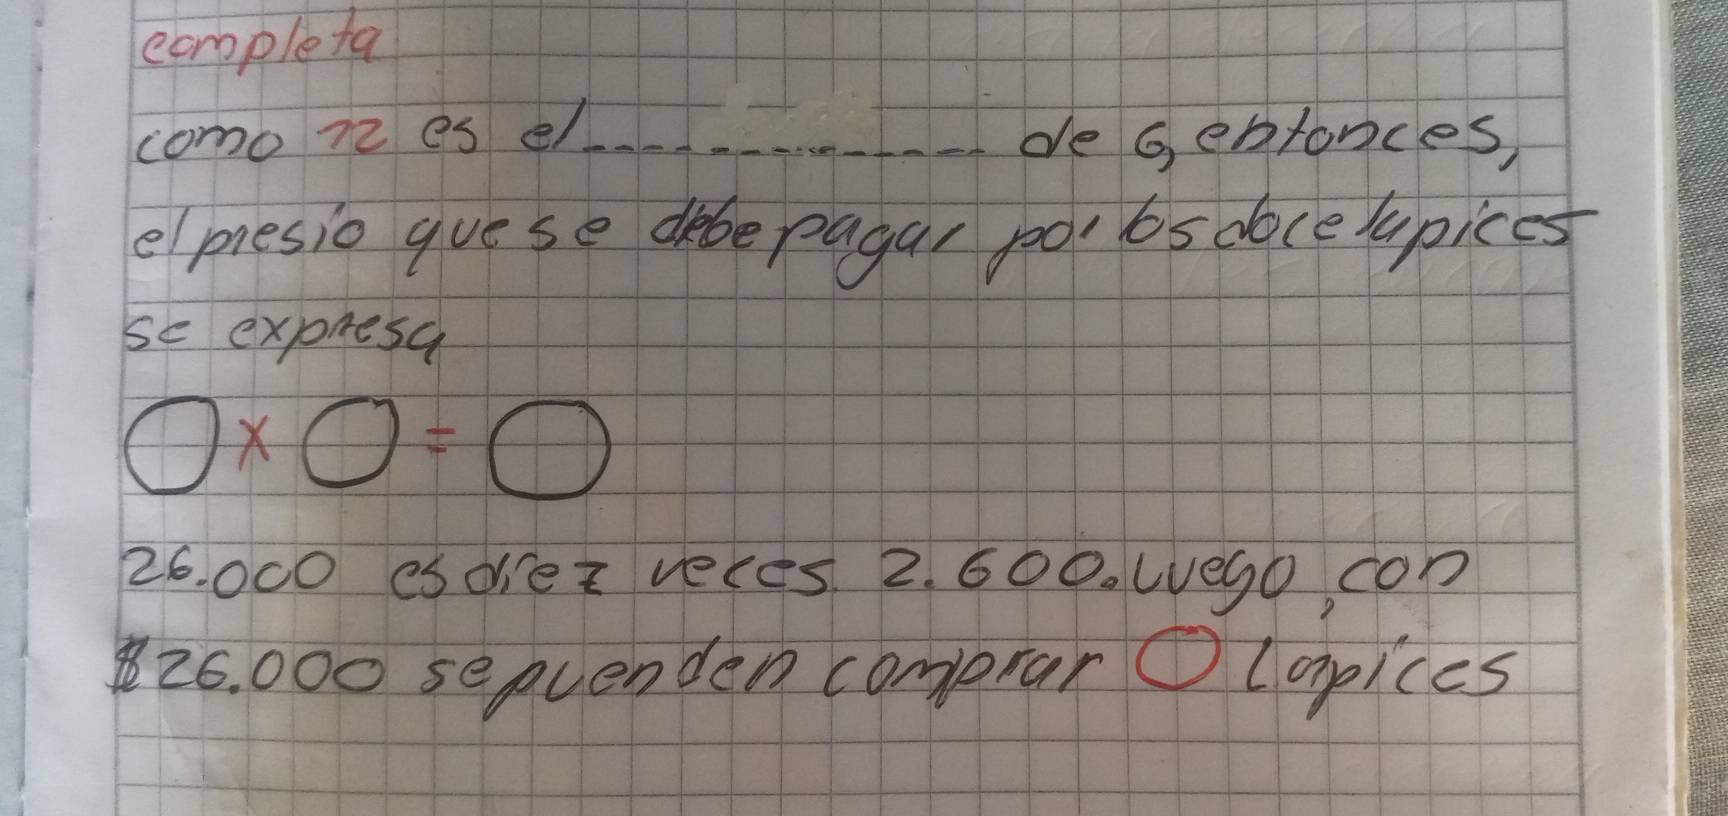 completa
como 12 es el -------------- de 6, entonces,
el presio que se debe pagar por los doce lapices
se expresa
O x O = O
26.000 es diez veces. 2.600. luego, con
$26.000 se puenden comprar O lapices